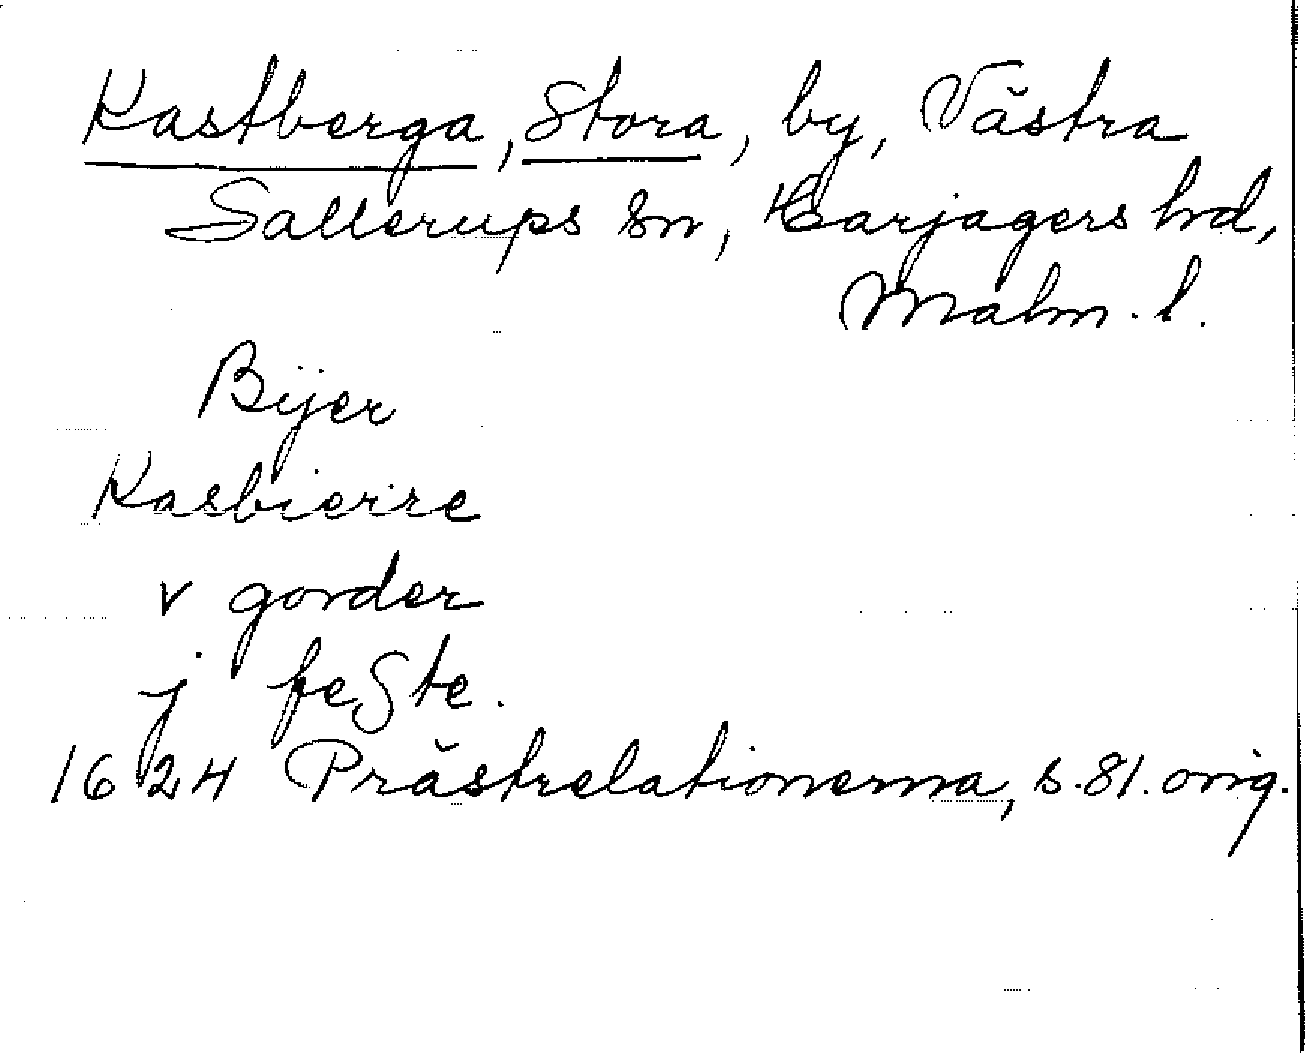 Kastberga, Stora, by, Västra
Sallerups sn, Harjagers hd,
Malm. l.
Bÿer
Kasbierre
v gorder
j feste.
1624 Prästrelationerna, s. 81. orig.